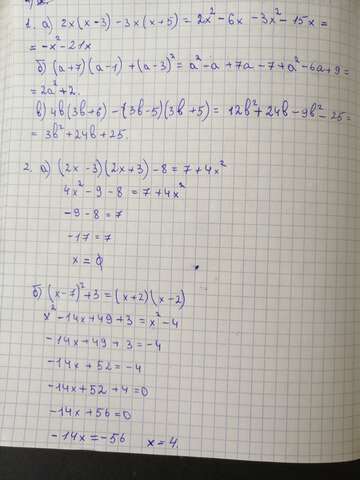 1. а) 2x(x-3)-3x(x+5)=2x²-6x-3x²-15x=
=-x²-21x
б) (a+7)(a-1)+(a-3)²=a²-a+7a-7+a²-6a+9=
=2a²+2.
в) 4b(3b+6)-(3b-5)(3b+5)=12b²+24b-9b²-25=
=3b²+24b+25.
2. а) (2x-3)(2x+3)-8=7+4x²
4x²-9-8=7+4x²
-9-8=7
-17=7
x=ϕ
б) (x-7)²+3=(x+2)(x-2)
x²-14x+49+3=x²-4
-14x+49+3=-4
-14x+52=-4
-14x+52+4=0
-14x+56=0
-14x=-56 x=4